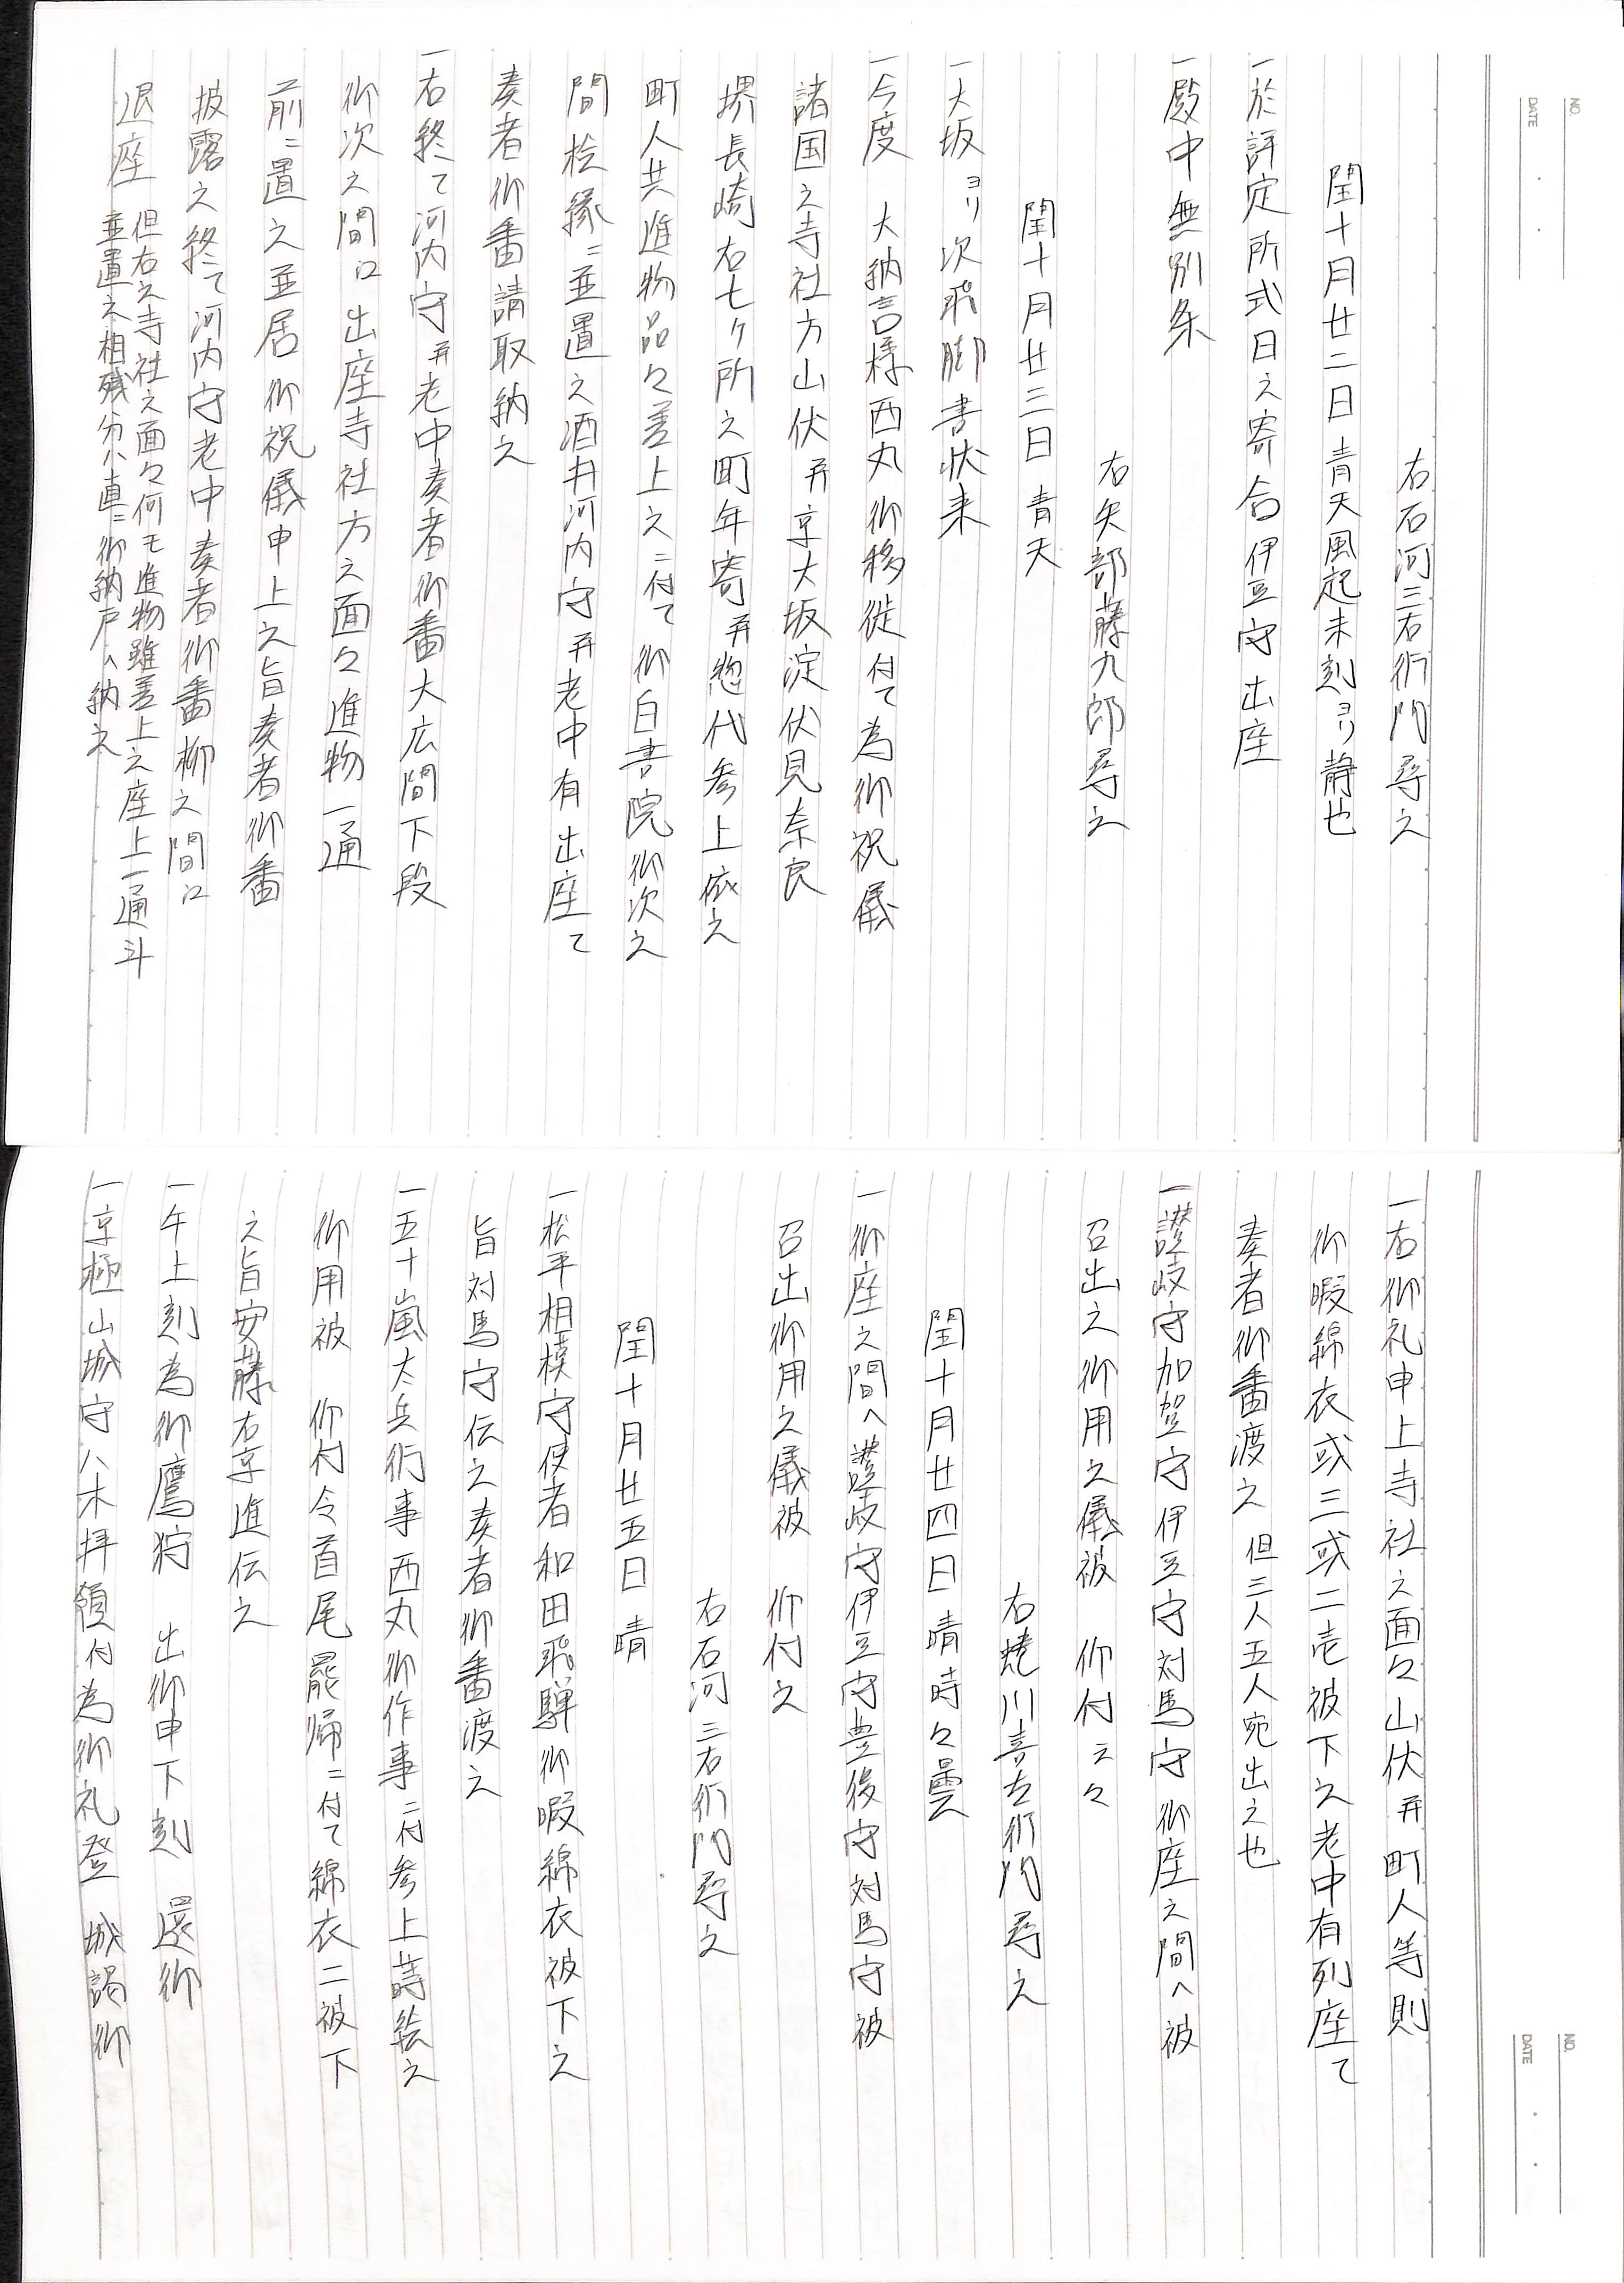 NO.
DATE
右石河三右衛門尋之
閏十月廿二日 青天風起未刻ヨリ静也
一於評定所式日之寄合伊豆守出座
一殿中無別条
右矢部藤九郎尋之
閏十月廿三日 青天
一大坂ヨリ次飛脚書状来
一今度 大納言様西丸御移徙付て為御祝儀
諸国之寺社方山伏并京大坂淀伏見奈良
堺長崎右七ケ所之町年寄并惣代参上依之
町人共進物品々差上之ニ付て御白書院御次之
間桧縁ニ並置之酒井河内守并老中有出座て
奏者御番請取納之
一右終て河内守并老中奏者御番大広間下段
御次之間江出座寺社方之面々進物一通
前ニ置之並居御祝儀申上之旨奏者御番
披露之終て河内守老中奏者御番柳之間江
退座 但右之寺社之面々何モ進物雖差上之座上一通斗
並置之相残分ハ直ニ御納戸へ納之
NO.
DATE
一右御礼申上寺社之面々山伏并町人等則
御暇綿衣或三或二壱被下之老中有列座て
奏者御番渡之 但三人五人宛出之也
一讃岐守加賀守伊豆守対馬守御座之間へ被
召出之御用之儀被 仰付云々
右蜷川喜左衛門尋之
閏十月廿四日 晴時々曇
一御座之間へ讃岐守伊豆守豊後守対馬守被
召出御用之儀被 仰付之
右石河三右衛門尋之
閏十月廿五日 晴
一松平相模守使者和田飛騨御暇綿衣被下之
旨対馬守伝之奏者御番渡之
一五十嵐太兵衛事西丸御作事ニ付参上蒔絵之
御用被 仰付令首尾罷帰ニ付て綿衣二被下
之旨安藤右京進伝之
一午上刻為御鷹狩 出御申下刻 還御
一京極山城守八木拝領付為御礼登 城謁御